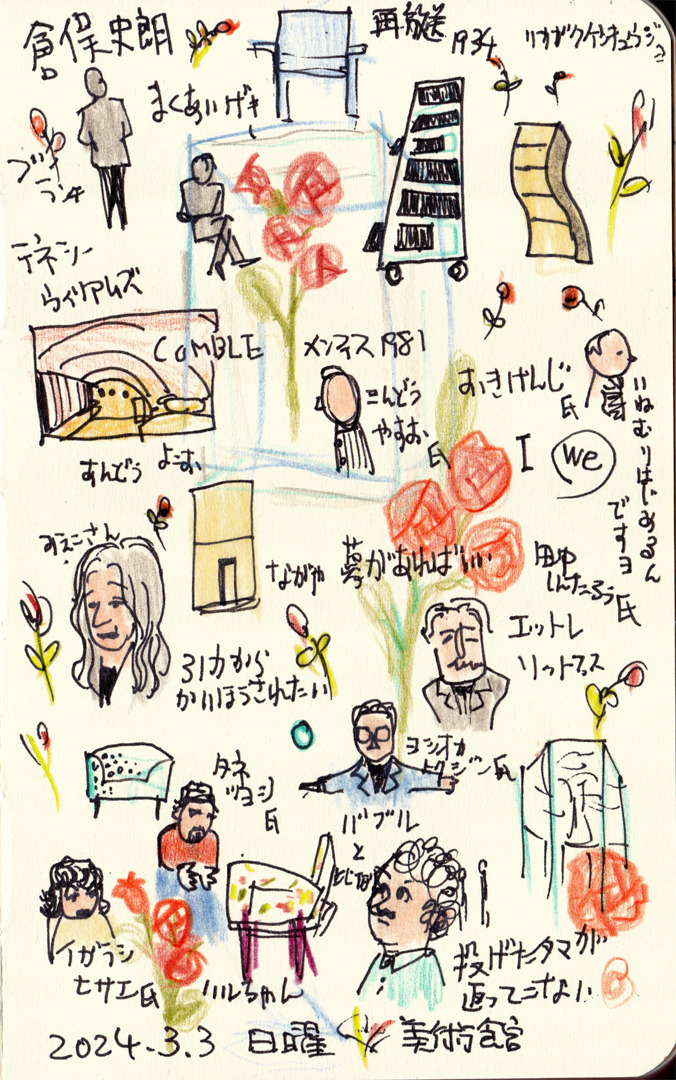 倉俣史朗
再放送
1934
まくあいげき
ブキ
ランチ
テネシー
ウイリアムズ
COMBLE
メンフィス1981
あんどう
やすお
氏
おきけんじ
氏
I
we
いねむりはあるん
ですヨ
みえこさん
ながや
夢があればいい
田中
しんたろう氏
引力から
かいほうされたい
エットレ
ソットサス
ヨシオカ
トクジン氏
タネ
ツヨシ
氏
バブル
と
イガラシ
ヒサエ氏
ハルちゃん
投げたタマが
返ってこない
2024.3.3 日曜美術館